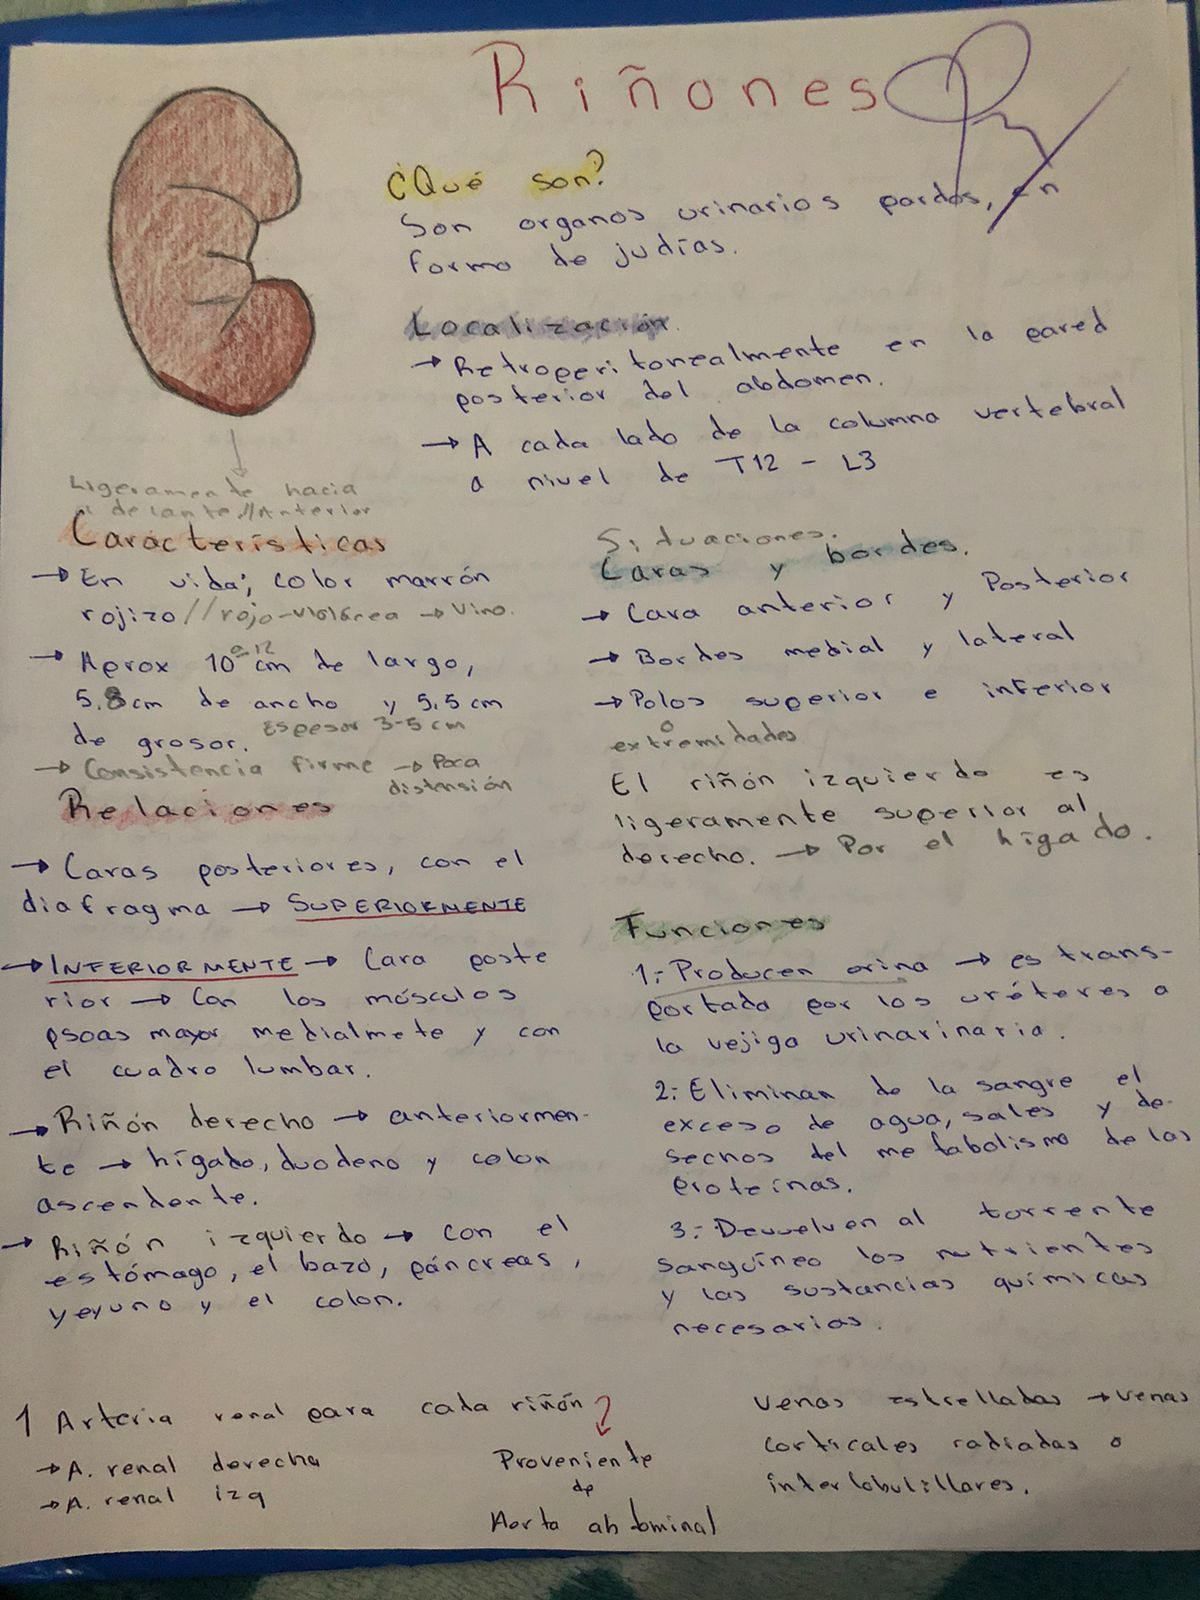 Riñones
¿Qué son?
Son organos urinarios pardos, en
forma de judías.
Localización.
→ Retroperitonealmente en la pared
posterior del abdomen.
→ A cada lado de la columna vertebral
a nivel de T12 - L3
Ligeramente hacia
delante//Anterior
Carácterísticas
→ En vida; color marrón
rojizo//rojo-violácea → Vino.
→ Aprox 10 a 12 cm de largo,
5.8cm de ancho y 5.5 cm
de grosor. Espesor 3-5 cm
→ Consistencia firme → Poca
distensión
Relaciones
→ Caras posteriores, con el
diafragma → SUPERIORMENTE
→ INFERIORMENTE → Cara poste
rior → Con los músculos
psoas mayor medialmete y con
el cuadro lumbar.
→ Riñón derecho → anteriormen-
te → hígado, duodeno y colon
ascendente.
→ Riñón izquierdo → con el
estómago, el bazo, páncreas,
yeyuno y el colon.
Situaciones.
Caras y bordes.
→ Cara anterior y Posterior
→ Bordes medial y lateral
→ Polos superior e inferior
o
extremidades
El riñón izquierdo es
ligeramente superior al
derecho. → Por el hígado.
Funciones
1.- Producen orina → es trans-
portada por los uréteres a
la vejiga urinarinaria.
2.- Eliminan de la sangre el
exceso de agua, sales y de-
sechos del metabolismo de las
proteínas.
3.- Devuelven al torrente
sanguíneo los nutrientes
y las sustancias químicas
necesarias.
1 Arteria renal para cada riñón
→ A. renal derecha
→ A. renal izq
Proveniente
de
Aorta abdominal
Venas estrelladas → venas
corticales radiadas o
interlobulillares.